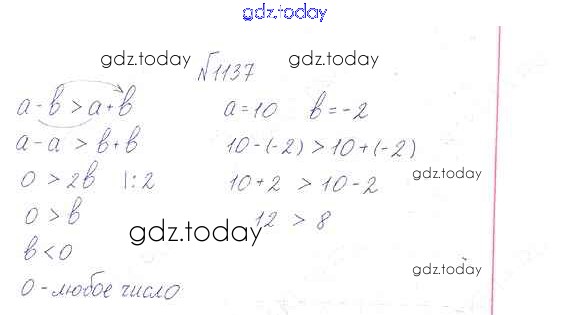 gdz.today
gdz.today
№1137
gdz.today
a-b>a+b
a-a>b+b
0>2b |:2
0>b
b<0
0-любое число
a=10 b=-2
10-(-2)>10+(-2)
10+2>10-2
12>8
gdz.today
gdz.today
gdz.today